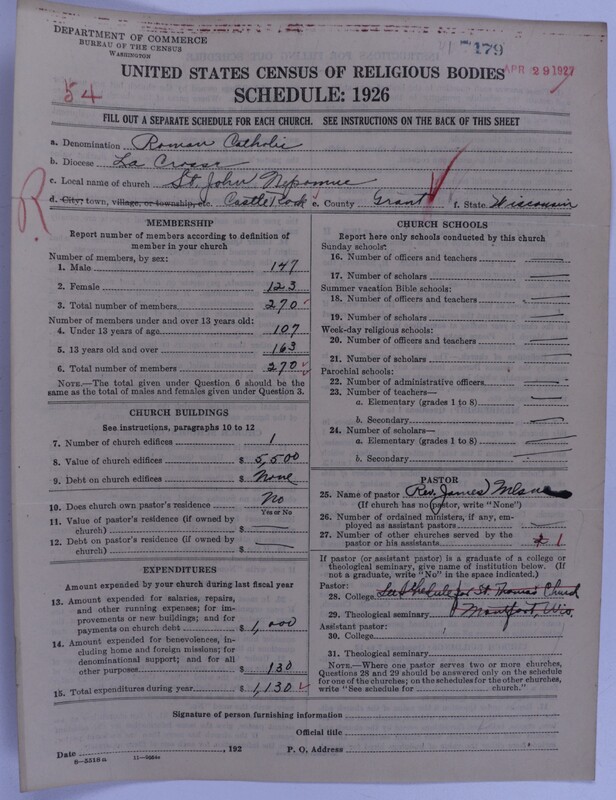 DEPARTMENT OF COMMERCE
BUREAU OF THE CENSUS
WASHINGTON
179
APR 29 1927
UNITED STATES CENSUS OF RELIGIOUS BODIES
SCHEDULE: 1926
54
FILL OUT A SEPARATE SCHEDULE FOR EACH CHURCH. SEE INSTRUCTIONS ON THE BACK OF THIS SHEET
a. Denomination Roman Catholic
b. Diocese La Crosse
c. Local name of church St. John Nepomuc
R
d. City, town, village, or township, etc. Castle Rock e. County Grant f. State Wisconsin
MEMBERSHIP
Report number of members according to definition of member in your church
Number of members, by sex:
1. Male 147
2. Female 123
3. Total number of members 270
Number of members under and over 13 years old:
4. Under 13 years of age 107
5. 13 years old and over 163
6. Total number of members 270
NOTE.—The total given under Question 6 should be the same as the total of males and females given under Question 3.
CHURCH BUILDINGS
See instructions, paragraphs 10 to 12
7. Number of church edifices 1
8. Value of church edifices $ 5,500
9. Debt on church edifices $ None
10. Does church own pastor's residence No
Yes or No
11. Value of pastor's residence (if owned by church) $
12. Debt on pastor's residence (if owned by church) $
EXPENDITURES
Amount expended by your church during last fiscal year
13. Amount expended for salaries, repairs, and other running expenses; for improvements or new buildings; and for payments on church debt $ 1,000
14. Amount expended for benevolences, including home and foreign missions; for denominational support; and for all other purposes $ 130
15. Total expenditures during year $ 1,130
CHURCH SCHOOLS
Report here only schools conducted by this church
Sunday schools:
16. Number of officers and teachers
17. Number of scholars
Summer vacation Bible schools:
18. Number of officers and teachers
19. Number of scholars
Week-day religious schools:
20. Number of officers and teachers
21. Number of scholars
Parochial schools:
22. Number of administrative officers
23. Number of teachers—
a. Elementary (grades 1 to 8)
b. Secondary
24. Number of scholars—
a. Elementary (grades 1 to 8)
b. Secondary
PASTOR
25. Name of pastor Rev. James
(If church has no pastor, write "None")
26. Number of ordained ministers, if any, employed as assistant pastors
27. Number of other churches served by the pastor or his assistants 1
If pastor (or assistant pastor) is a graduate of a college or theological seminary, give name of institution below. (If not a graduate, write "No" in the space indicated.)
Pastor:
28. College See Schedule for St. Thomas Church
29. Theological seminary Montfort, Wis.
Assistant pastor:
30. College
31. Theological seminary
NOTE.—Where one pastor serves two or more churches, Questions 28 and 29 should be answered only on the schedule for one of the churches; on the schedules for the other churches, write "See schedule for church."
Signature of person furnishing information
Official title
Date , 192 P. O. Address
8-5518a